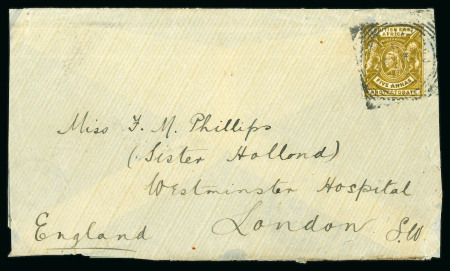 BRITISH EAST
AFRICA
FIVE ANNAS
PROTECTORATE
Miss F. M. Phillips
(Sister Hollond)
Westminster Hospital
London S.W.
England